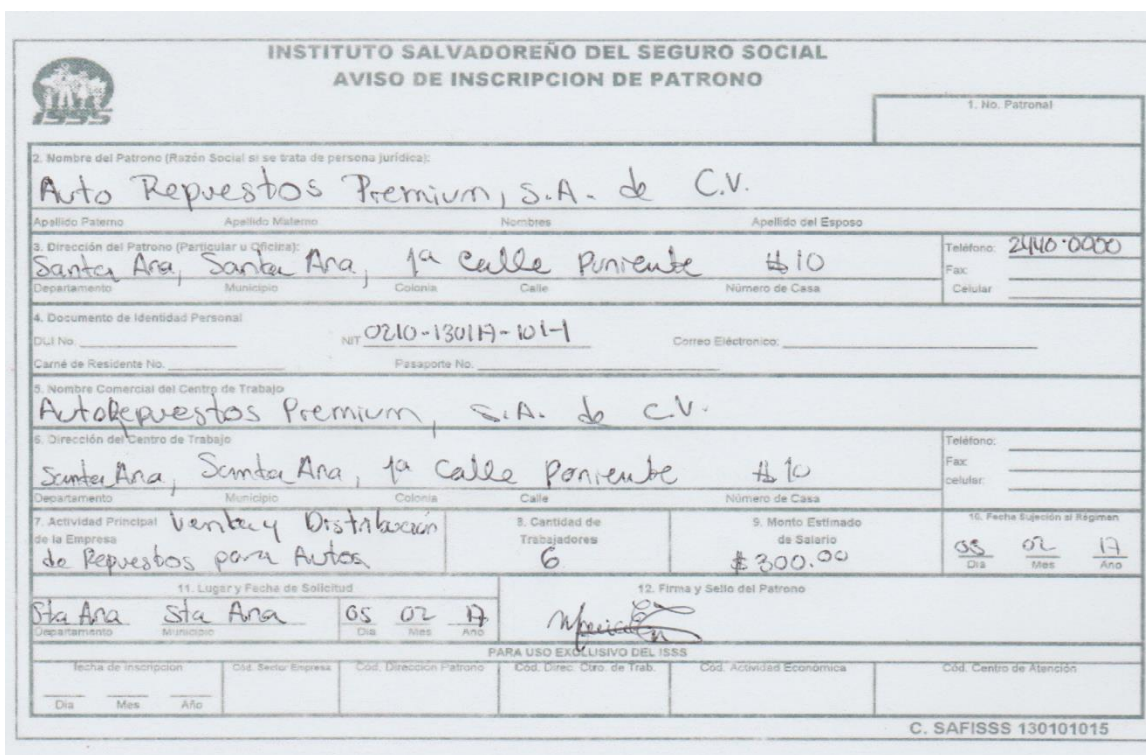 INSTITUTO SALVADOREÑO DEL SEGURO SOCIAL
AVISO DE INSCRIPCION DE PATRONO
ISSS
1. No. Patronal
2. Nombre del Patrono (Razón Social si se trata de persona jurídica):
Auto Repuestos Premium, S.A. de C.V.
Apellido Paterno Apellido Materno Nombres Apellido del Esposo
3. Dirección del Patrono (Particular u Oficina):
Santa Ana, Santa Ana, 1ª Calle Poniente #10
Departamento Municipio Colonia Calle Número de Casa
Teléfono: 2440-0000
Fax:
Celular
4. Documento de Identidad Personal
DUI No. NIT 0210-130117-101-1 Correo Eléctronico:
Carné de Residente No. Pasaporte No.
5. Nombre Comercial del Centro de Trabajo
AutoRepuestos Premium, S.A. de C.V.
6. Dirección del Centro de Trabajo
Santa Ana, Santa Ana, 1ª Calle Poniente #10
Departamento Municipio Colonia Calle Número de Casa
Teléfono:
Fax:
celular:
7. Actividad Principal Venta y Distribución
de la Empresa
de Repuestos para Autos
8. Cantidad de
Trabajadores
6
9. Monto Estimado
de Salario
$300.00
10. Fecha Sujeción al Régimen
05 02 17
Día Mes Ano
11. Lugar y Fecha de Solicitud
Sta Ana Sta Ana 05 02 17
Departamento Municipio Dia Mes Ano
12. Firma y Sello del Patrono
PARA USO EXCLUSIVO DEL ISSS
fecha de inscripcion Cód. Sector Empresa Cód. Dirección Patrono Cód. Direc. Ctro. de Trab. Cód. Actividad Económica Cód. Centro de Atención
Día Mes Año
C. SAFISSS 130101015